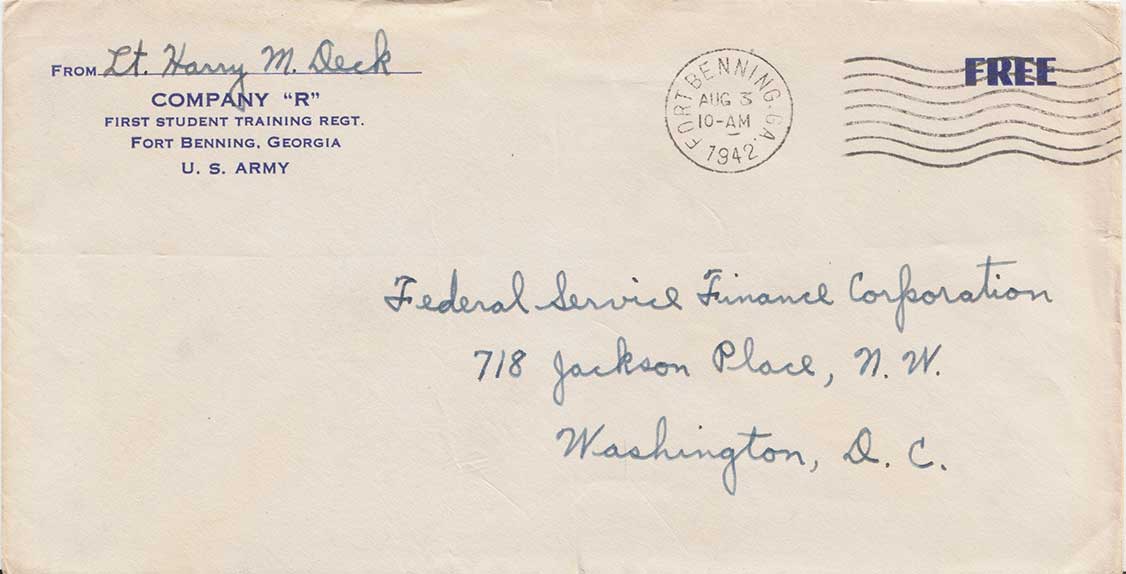 FROM Lt. Harry M. Deck
COMPANY "R"
FIRST STUDENT TRAINING REGT.
FORT BENNING, GEORGIA
U. S. ARMY
FORT BENNING, GA.
AUG 3
10-AM
1942
FREE
Federal Service Finance Corporation
718 Jackson Place, N. W.
Washington, D. C.